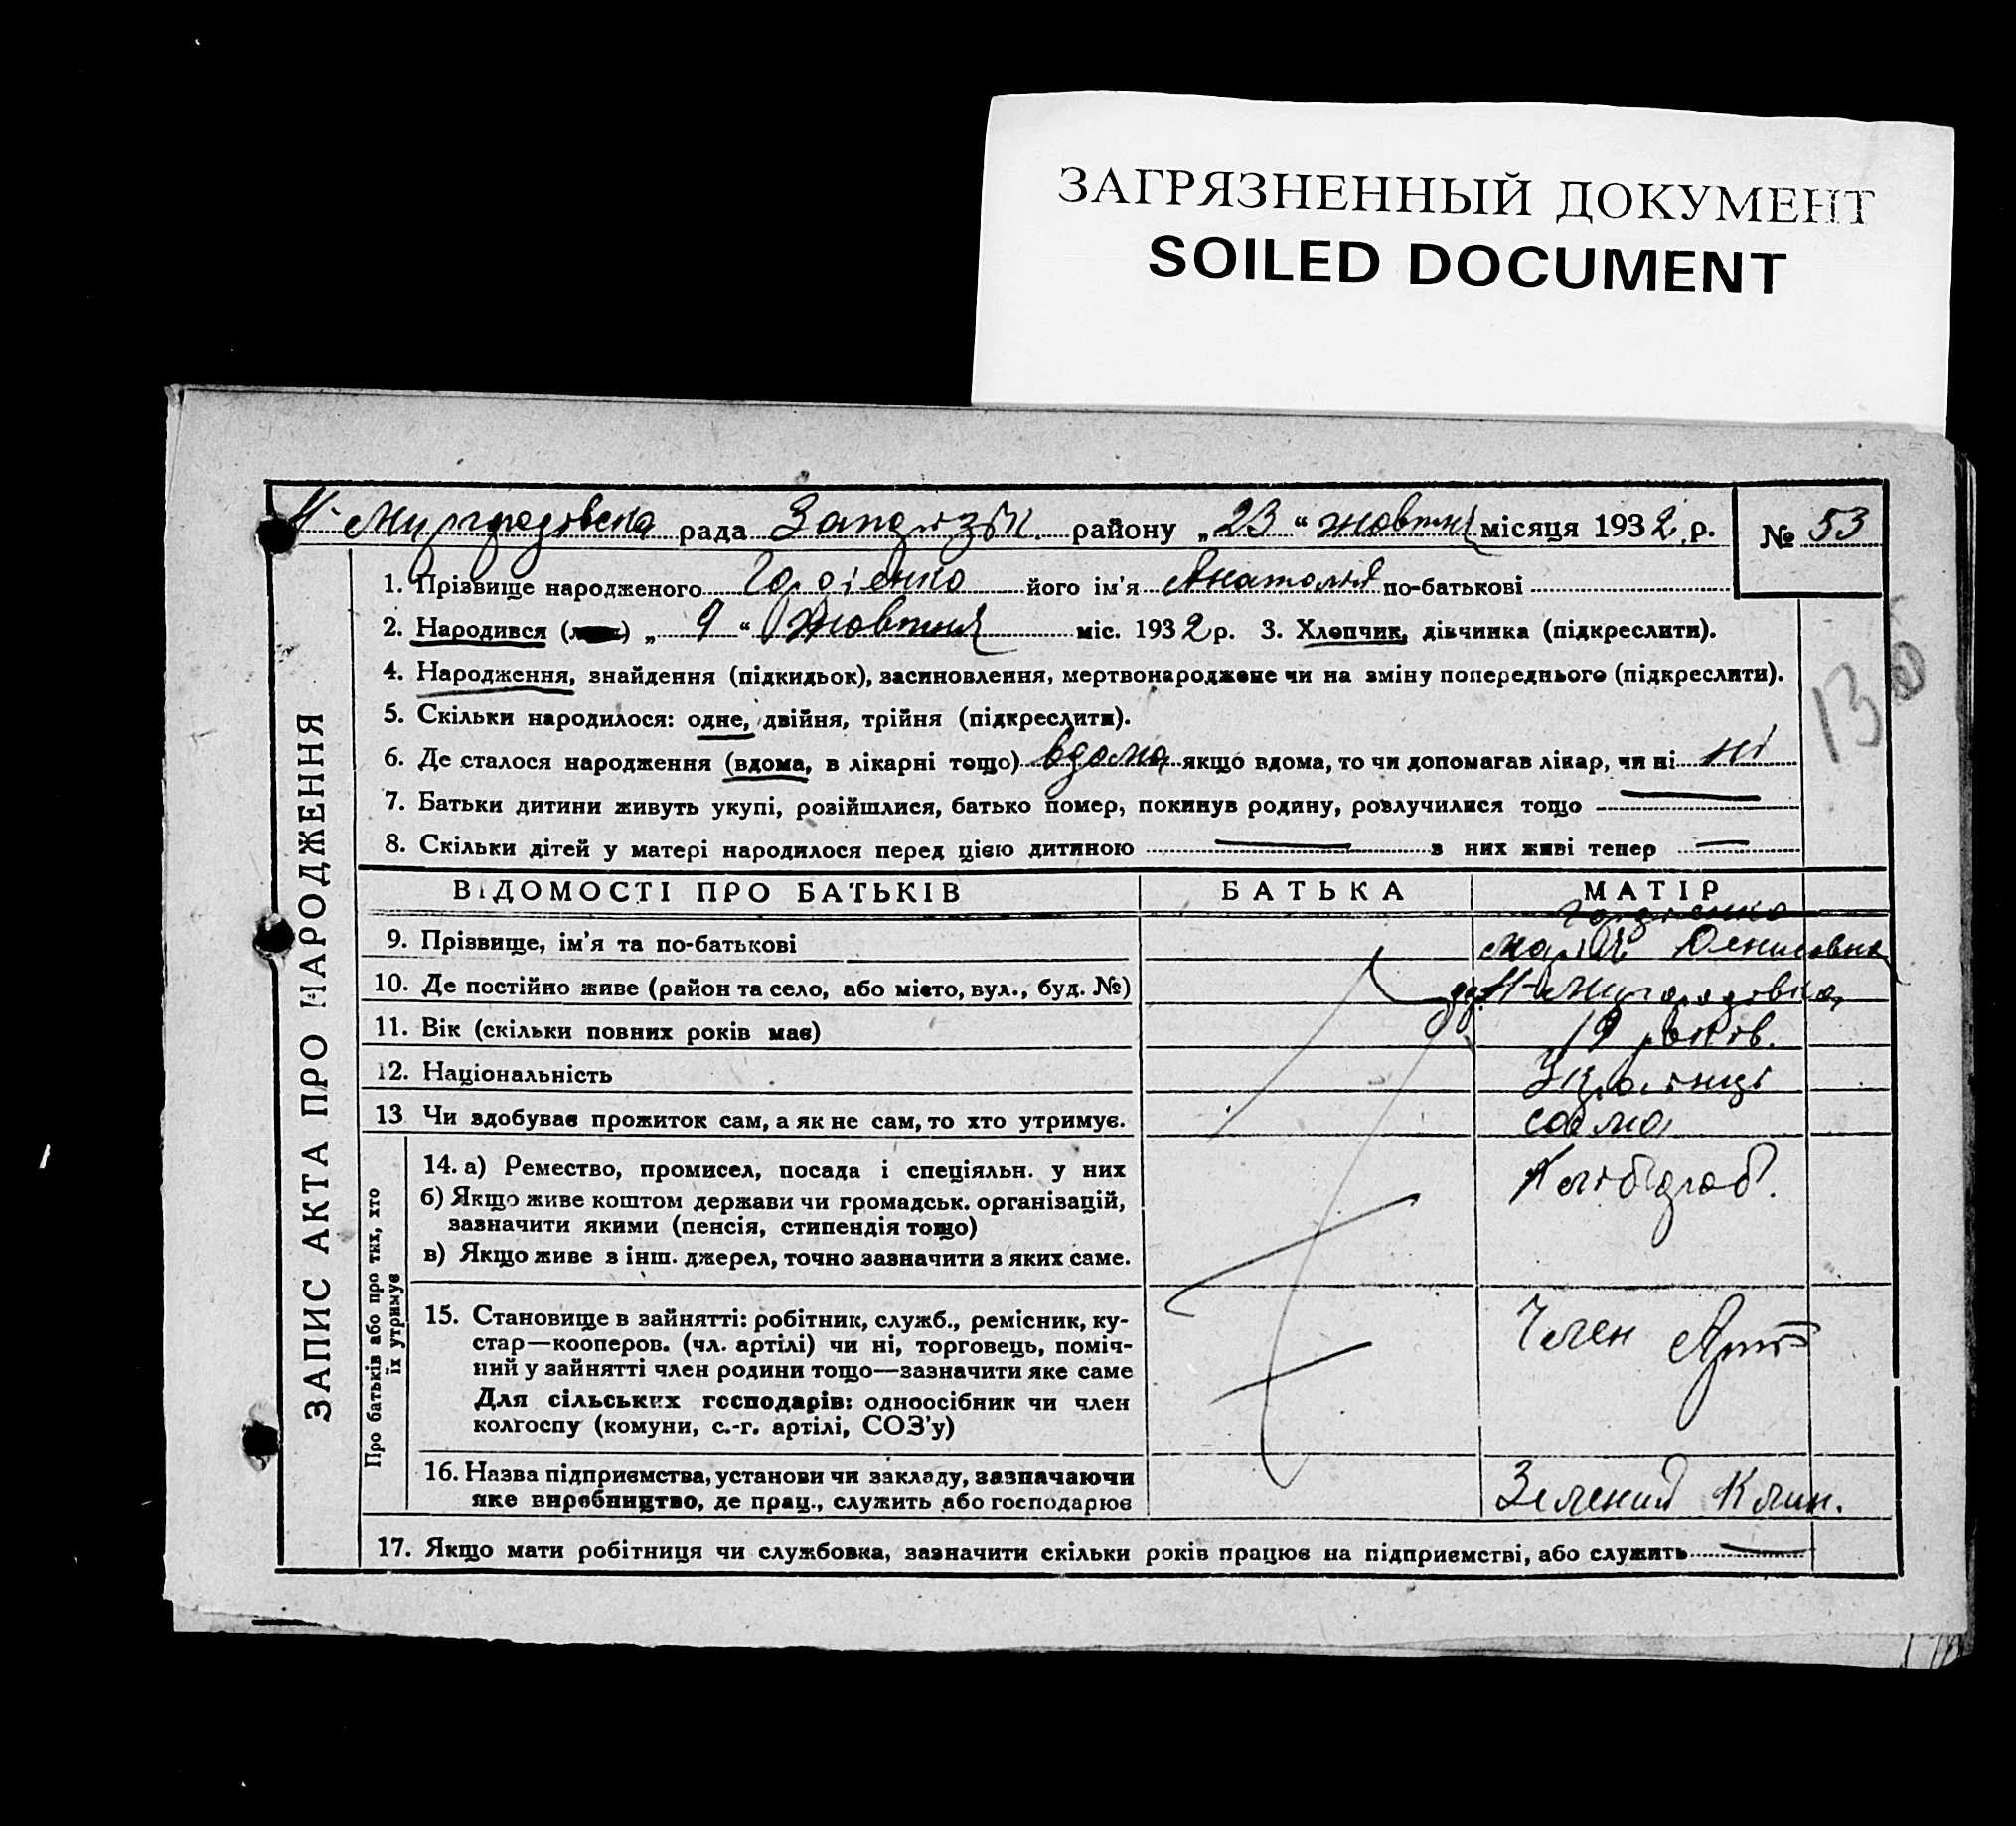 ЗАГРЯЗНЕННЫЙ ДОКУМЕНТ
SOILED DOCUMENT
рада район у „23 “ жовтня місяця 1932 р. № 53
ЗАПИС АКТА ПРО НАРОДЖЕННЯ
1. Прізвище народженого Гордієнко його ім'я Анатолій по-батькові
2. Народився ( ) „ 9 “ Жовтня міс. 1932 р. 3. Хлопчик, дівчинка (підкреслити).
4. Народження, знайдення (підкидьок), засиновлення, мертвонароджене чи на зміну попереднього (підкреслити).
5. Скільки народилося: одне, двійня, трійня (підкреслити).
6. Де сталося народження (вдома, в лікарні тощо) вдома якщо вдома, то чи допомагав лікар, чи ні ні
7. Батьки дитини живуть укупі, розійшлися, батько помер, покинув родину, розлучилися тощо —
8. Скільки дітей у матері народилося перед цією дитиною — з них живі тепер —
ВІДОМОСТІ ПРО БАТЬКІВ БАТЬКА МАТІР
Гордієнко
9. Прізвище, ім'я та по-батькові Марія Денисовна
10. Де постійно живе (район та село, або місто, вул., буд. №)
11. Вік (скільки повних років має) 19 років.
12. Національність
13 Чи здобуває прожиток сам, а як не сам, то хто утримує. сама
Про батьків або про тих, хто їх утримує
14. а) Ремество, промисел, посада і спеціяльн. у них Хлібороб.
б) Якщо живе коштом держави чи громадськ. організацій,
зазначити якими (пенсія, стипендія тощо)
в) Якщо живе з інш. джерел, точно зазначити з яких саме.
15. Становище в зайнятті: робітник, служб., ремісник, ку- Член
стар—кооперов. (чл. артілі) чи ні, торговець, поміч-
ний у зайнятті член родини тощо—зазначити яке саме
Для сільських господарів: одноосібник чи член
колгоспу (комуни, с.-г. артілі, СОЗ'у)
16. Назва підприємства, установи чи закладу, зазначаючи Зелений Клин.
яке виробництво, де прац., служить або господарює
17. Якщо мати робітниця чи службовка, зазначити скільки років працює на підприємстві, або служить —